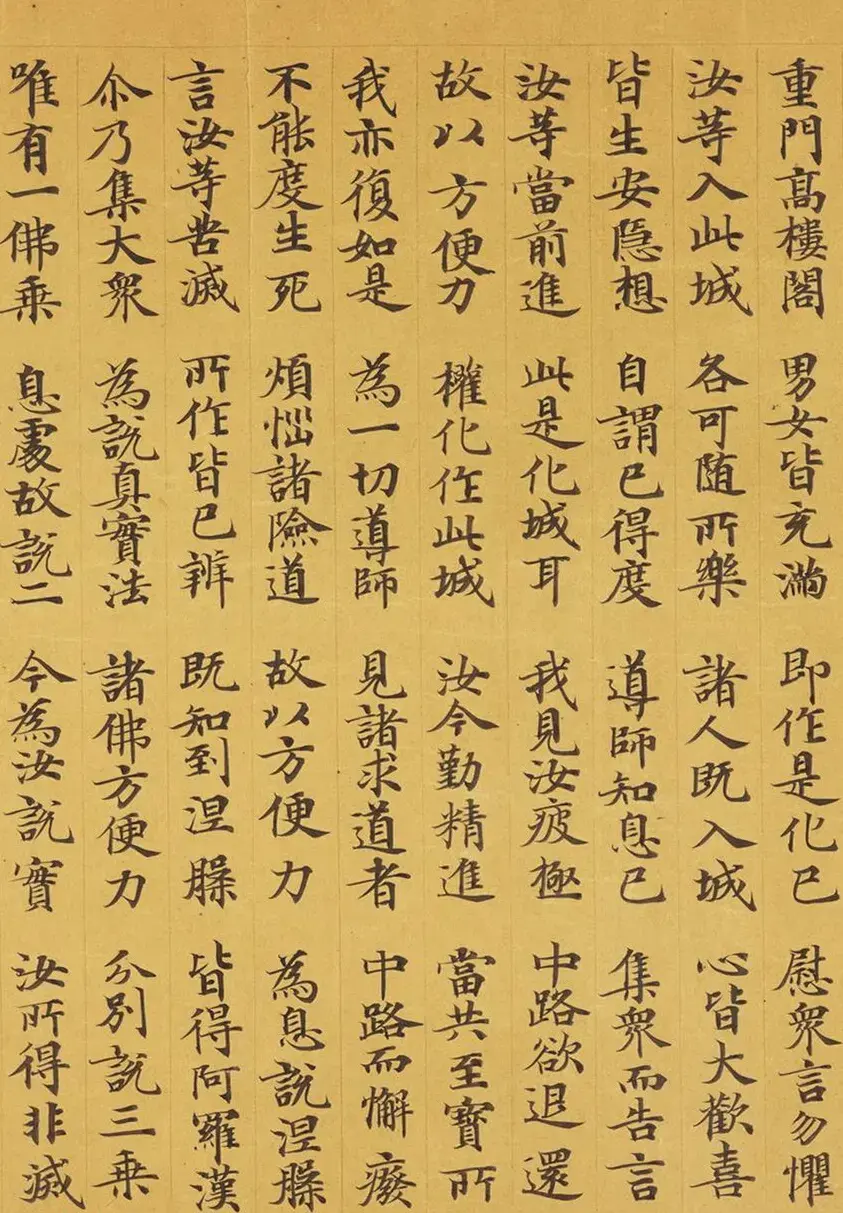 重門高樓閣 男女皆充滿 即作是化已 慰衆言勿懼
汝等入此城 各可随所樂 諸人既入城 心皆大歡喜
皆生安隱想 自謂已得度 導師知息已 集衆而告言
汝等當前進 此是化城耳 我見汝疲極 中路欲退還
故以方便力 權化作此城 汝今勤精進 當共至寳所
我亦復如是 為一切導師 見諸求道者 中路而懈癈
不能度生死 煩惱諸險道 故以方便力 為息說涅縣
言汝等苦滅 所作皆已辨 既知到涅縣 皆得阿羅漢
尒乃集大衆 為說真實法 諸佛方便力 分別說三乗
唯有一佛乗 息處故說二 今為汝說實 汝所得非滅